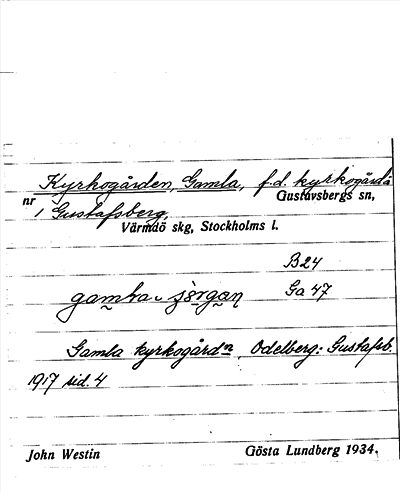 Kyrkogården, Gamla, f.d. kyrkogård å
nr 1 Gustafsberg, Gustavsbergs sn,
Värmdö skg, Stockholms l.
B24
Ga 47
Gamla kyrkogårdn, Odelberg: Gustafsb.
1917 sid. 4
John Westin Gösta Lundberg 1934.